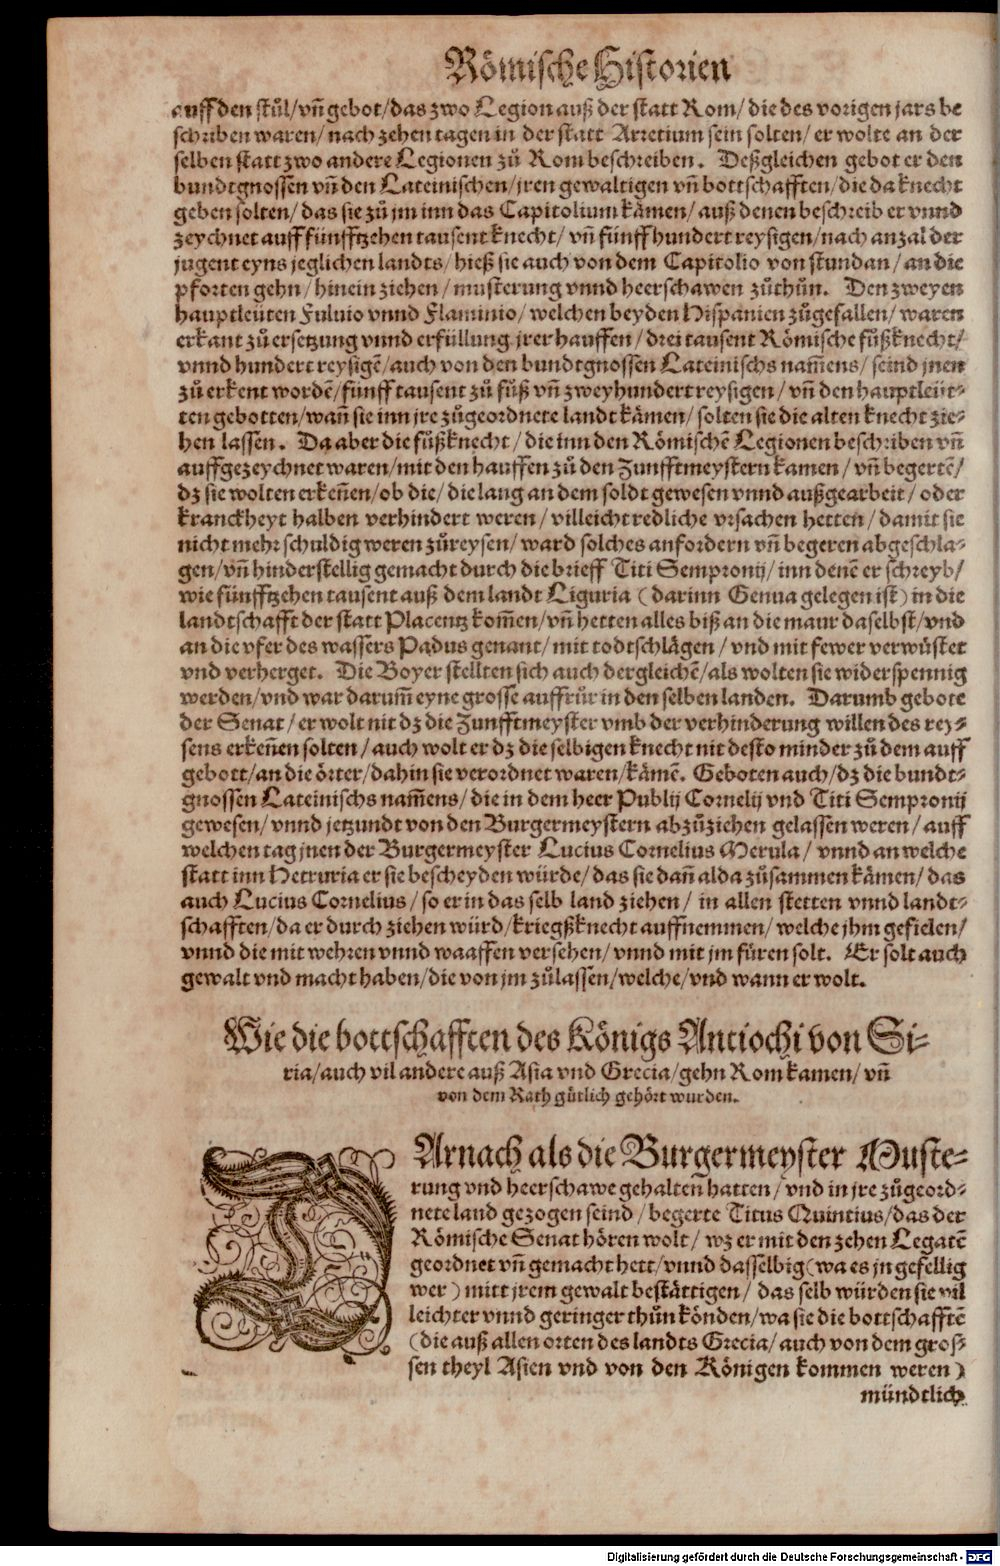 Römische Historien
auff den stůl/ vñ gebot/ das zwo Legion auß der statt Rom/ die des vorigen jars be
schriben waren/ nach zehen tagen in der statt Arretium sein solten/ er wolte an der
selben statt zwo andere Legionen zů Rom beschreiben. Deßgleichen gebot er den
bundtgnossen vñ den Lateinischen/ jren gewaltigen vñ bottschafften/ die da knecht
geben solten/ das sie zů jm inn das Capitolium kämen/ auß denen beschreib er vnnd
zeychnet auff fünfftzehen tausent knecht/ vñ fünff hundert reysigen/ nach anzal der
jugent eyns jeglichen landts/ hieß sie auch von dem Capitolio von stundan/ an die
pforten gehn/ hinein ziehen/ musterung vnnd heerschawen zůthůn. Den zweyen
hauptleüten Fuluio vnnd Flaminio/ welchen beyden Hispanien zůgefallen/ waren
erkant zů ersetzung vnnd erfüllung jrer hauffen/ drei tausent Römische fůßknecht/
vnnd hundert reysigẽ/ auch von den bundtgnossen Lateinischs nam̃ens/ seind jnen
zů erkent wordẽ/ fünff tausent zů fůß vñ zweyhundert reysigen/ vñ den hauptleüt-
ten gebotten/ wañ sie inn jre zůgeordnete landt kämen/ solten sie die alten knecht zie-
hen lassen. Da aber die fůßknecht/ die inn den Römischẽ Legionen beschriben vñ
auffgezeychnet waren/ mit den hauffen zů den Zunfftmeystern kamen/ vñ begertẽ/
dz sie wolten erkeñen/ ob die/ die lang an dem soldt gewesen vnnd außgearbeit/ oder
kranckheyt halben verhindert weren/ villeicht redliche vrsachen hetten/ damit sie
nicht mehr schuldig weren zůreysen/ ward solches anfordern vñ begeren abgeschla-
gen/ vñ hinderstellig gemacht durch die brieff Titi Sempronij/ inn denẽ er schreyb/
wie fünfftzehen tausent auß dem landt Liguria (darinn Genua gelegen ist) in die
landtschafft der statt Placentz kom̃en/ vñ hetten alles biß an die maur daselbst/ vnd
an die vfer des wassers Padus genant/ mit todtschlägen/ vnd mit fewer verwüstet
vnd verherget. Die Boyer stellten sich auch dergleichẽ/ als wolten sie widerspennig
werden/ vnd war darum̃ eyne grosse auffrůr in den selben landen. Darumb gebote
der Senat/ er wolt nit dz die Zunfftmeyster vmb der verhinderung willen des rey-
sens erkeñen solten/ auch wolt er dz die selbigen knecht nit desto minder zů dem auff
gebott/ an die örter/ dahin sie verordnet waren/ kämẽ. Geboten auch/ dz die bundt-
gnossen Lateinischs nam̃ens/ die in dem heer Publij Cornelij vnd Titi Sempronij
gewesen/ vnnd jetzundt von den Burgermeystern abzůziehen gelassen weren/ auff
welchen tag jnen der Burgermeyster Lucius Cornelius Merula/ vnnd an welche
statt inn Hetruria er sie bescheyden würde/ das sie dañ alda zůsammen kämen/ das
auch Lucius Cornelius/ so er in das selb land ziehen/ in allen stetten vnnd landt-
schafften/ da er durch ziehen würd/ kriegßknecht auffnemmen/ welche jhm gefielen/
vnnd die mit wehren vnnd waaffen versehen/ vnnd mit jm füren solt. Er solt auch
gewalt vnd macht haben/ die von jm zůlassen/ welche/ vnd wann er wolt.
Wie die bottschafften des Königs Antiochi von Si-
ria/ auch vil andere auß Asia vnd Grecia/ gehn Rom kamen/ vñ
von dem Rath gütlich gehört wurden.
DArnach als die Burgermeyster Muste-
rung vnd heerschawe gehalteñ hatten/ vnd in jre zůgeord-
nete land gezogen seind/ begerte Titus Quintius/ das der
Römische Senat hören wolt/ wz er mit den zehen Legatẽ
geordnet vñ gemacht hett/ vnnd dasselbig (wa es jn gefellig
wer) mitt jrem gewalt bestättigen/ das selb würden sie vil
leichter vnnd geringer thůn könden/ wa sie die bottschafftẽ
(die auß allen orten des landts Grecia/ auch von dem gros-
sen theyl Asien vnd von den Königen kommen weren)
mündtlich
Digitalisierung gefördert durch die Deutsche Forschungsgemeinschaft - DFG